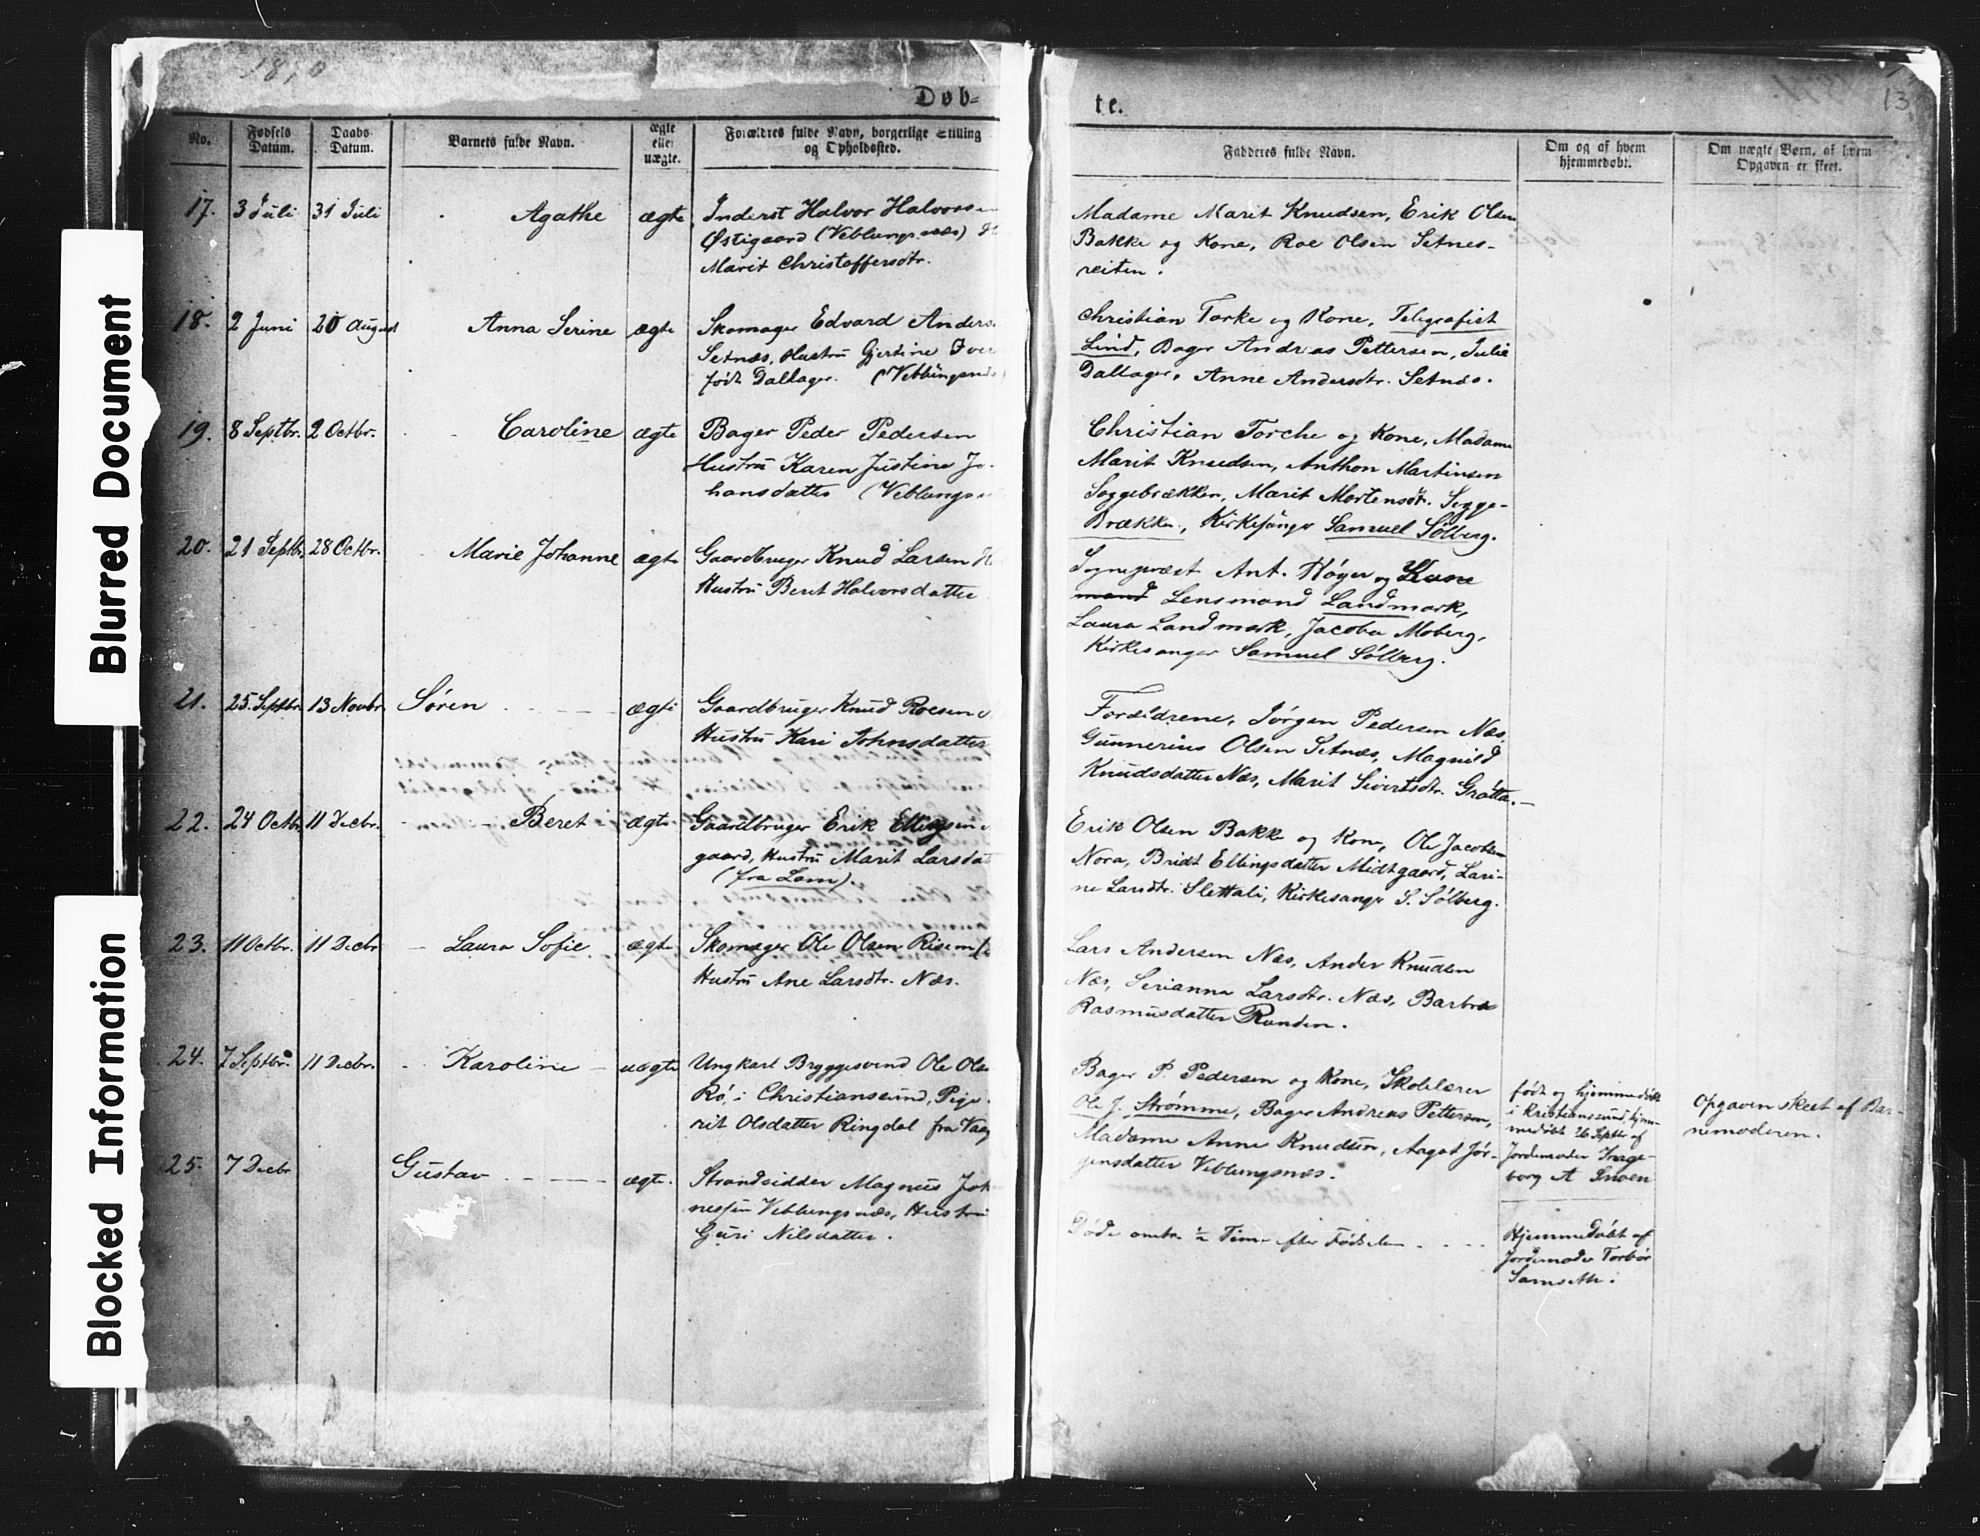 Blurred Document
Blocked Information
Døb=
te.
13
No.
Fødsels Datum.
Daabs Datum.
Barnets fulde Navn.
ægte eller uægte.
Forældres fulde Navn, borgerlige Stilling
og Opholdssted.
Fadderes fulde Navn.
Om og af hvem hjemmedøbt.
Om uægte Børn, af hvem Opgaven er skeet.
17. 3 Juli 31 Juli Agathe ægte Inderst Halvor Halvorsen
Østigaard (Veblungsnæs)
Marit Christoffersdtr.
Madame Marit Knudsen, Erik Olsen
Bakke og Kone, Roe Olsen Setnes-
reiten.
18. 2 Juni 20 August Anna Serine ægte Skomager Edvard Anders
Setnæs, Hustru Gjertine Iver
født Dallager. (Veblungsnæs
Christian Torke og Kone, Telegrafist
Lind, Bager Andreas Pettersen, Julie
Dallager, Anne Andersdtr. Setnæs.
19. 8 Septbr. 2 Octbr. Caroline ægte Bager Peder Pedersen
Hustru Karen Justine Jo-
hansdatter (Veblungs
Christian Torche og Kone, Madame
Marit Knudsen, Anthon Martinsen
Soggebrækken, Marit Mortensdtr. Sogge-
Brækken, Kirkesanger Samuel Sølberg.
20. 21 Septbr. 28 Octbr. Marie Johanne ægte Gaardbruger Knud Larsen
Hustru Berit Halvorsdatter
Sognepræst Ant. Høyer og Kone
mand Lensmand Landmark,
Laura Landmark, Jacoba Moberg,
Kirkesanger Samuel Sølberg.
21. 25. Septbr. 13 Novbr. Søren ægte Gaardbruger Knud Roesen
Hustru Kari Johnsdatter
Forældrene, Jørgen Pedersen Næs,
Gunnerius Olsen Setnæs, Magnild
Knudsdatter Næs, Marit Sivertsdtr. Grøtta.
22. 24 Octbr. 11 Decbr. Beret ægte Gaardbruger Erik Ellingsen
gaard, Hustru Marit Larsdat
(fra Lom).
Erik Olsen Bakke og Kone, Ole Jacobsen
Nora, Bridt Ellingsdatter Midtgaard, Lari-
ne Larsdtr. Slettali, Kirkesanger S. Sølberg.
23. 11 Octbr. 11 Decbr Laura Sofie ægte Skomager Ole Olsen Risem
Hustru Ane Larsdtr. Næs.
Lars Andersen Næs, Anders Knudsen
Næs, Serianna Larsdtr. Næs, Barbra
Rasmusdatter Randen.
24. 7 Septbr. 11 Decbr. Karoline uægte Ungkarl Bryggesvend Ole Olse
Rø, i Christianssund, Pige
rit Olsdatter Ringdal fra Vaag
Bager P. Pedersen og Kone, Skolelærer
Ole J. Strømme, Bager Andreas Pettersen,
Madame Anne Knudsen, Aagot Jør-
gensdatter Veblungsnæs.
født og hjemmedøbt
i Kristianssund, hjem-
medøbt 26 Septbr af
Jordemoder Inge-
borg A Snoen
Opgaven skeet af Bar-
nemoderen.
25. 7 Decbr Gustav ægte. Strandsidder Magnus Joh
nessen Veblungsnæs, Hustru
Guri Nilsdatter.
Døde omtr. ½ Time efter Fødselen
Hjemmedøbt af
Jordemoder Torbør
Samseth.